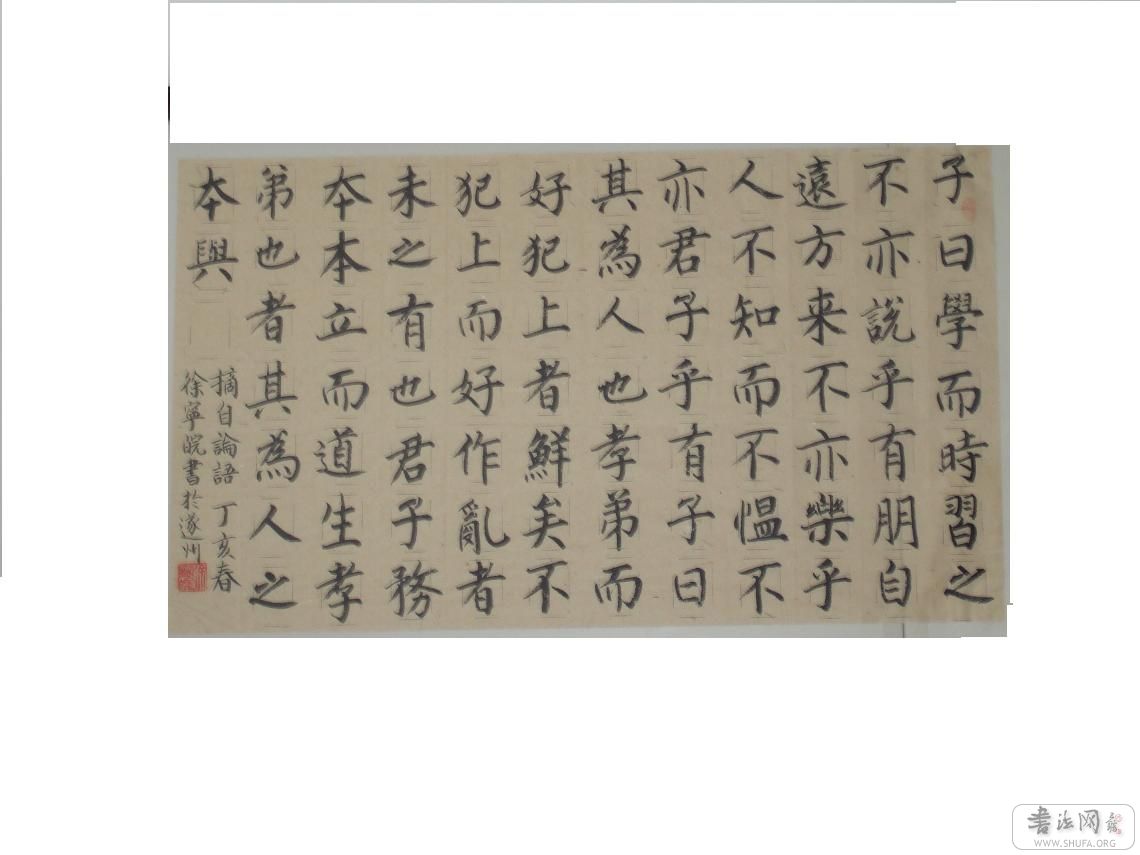 子曰學而時習之
不亦說乎有朋自
遠方来不亦樂乎
人不知而不愠不
亦君子乎有子曰
其為人也孝弟而
好犯上者鮮矣不
犯上而好作亂者
未之有也君子務
夲本立而道生孝
弟也者其為人之
夲與
摘自論語 丁亥春
徐寧皖書於遂州
书法网
WWW.SHUFA.ORG